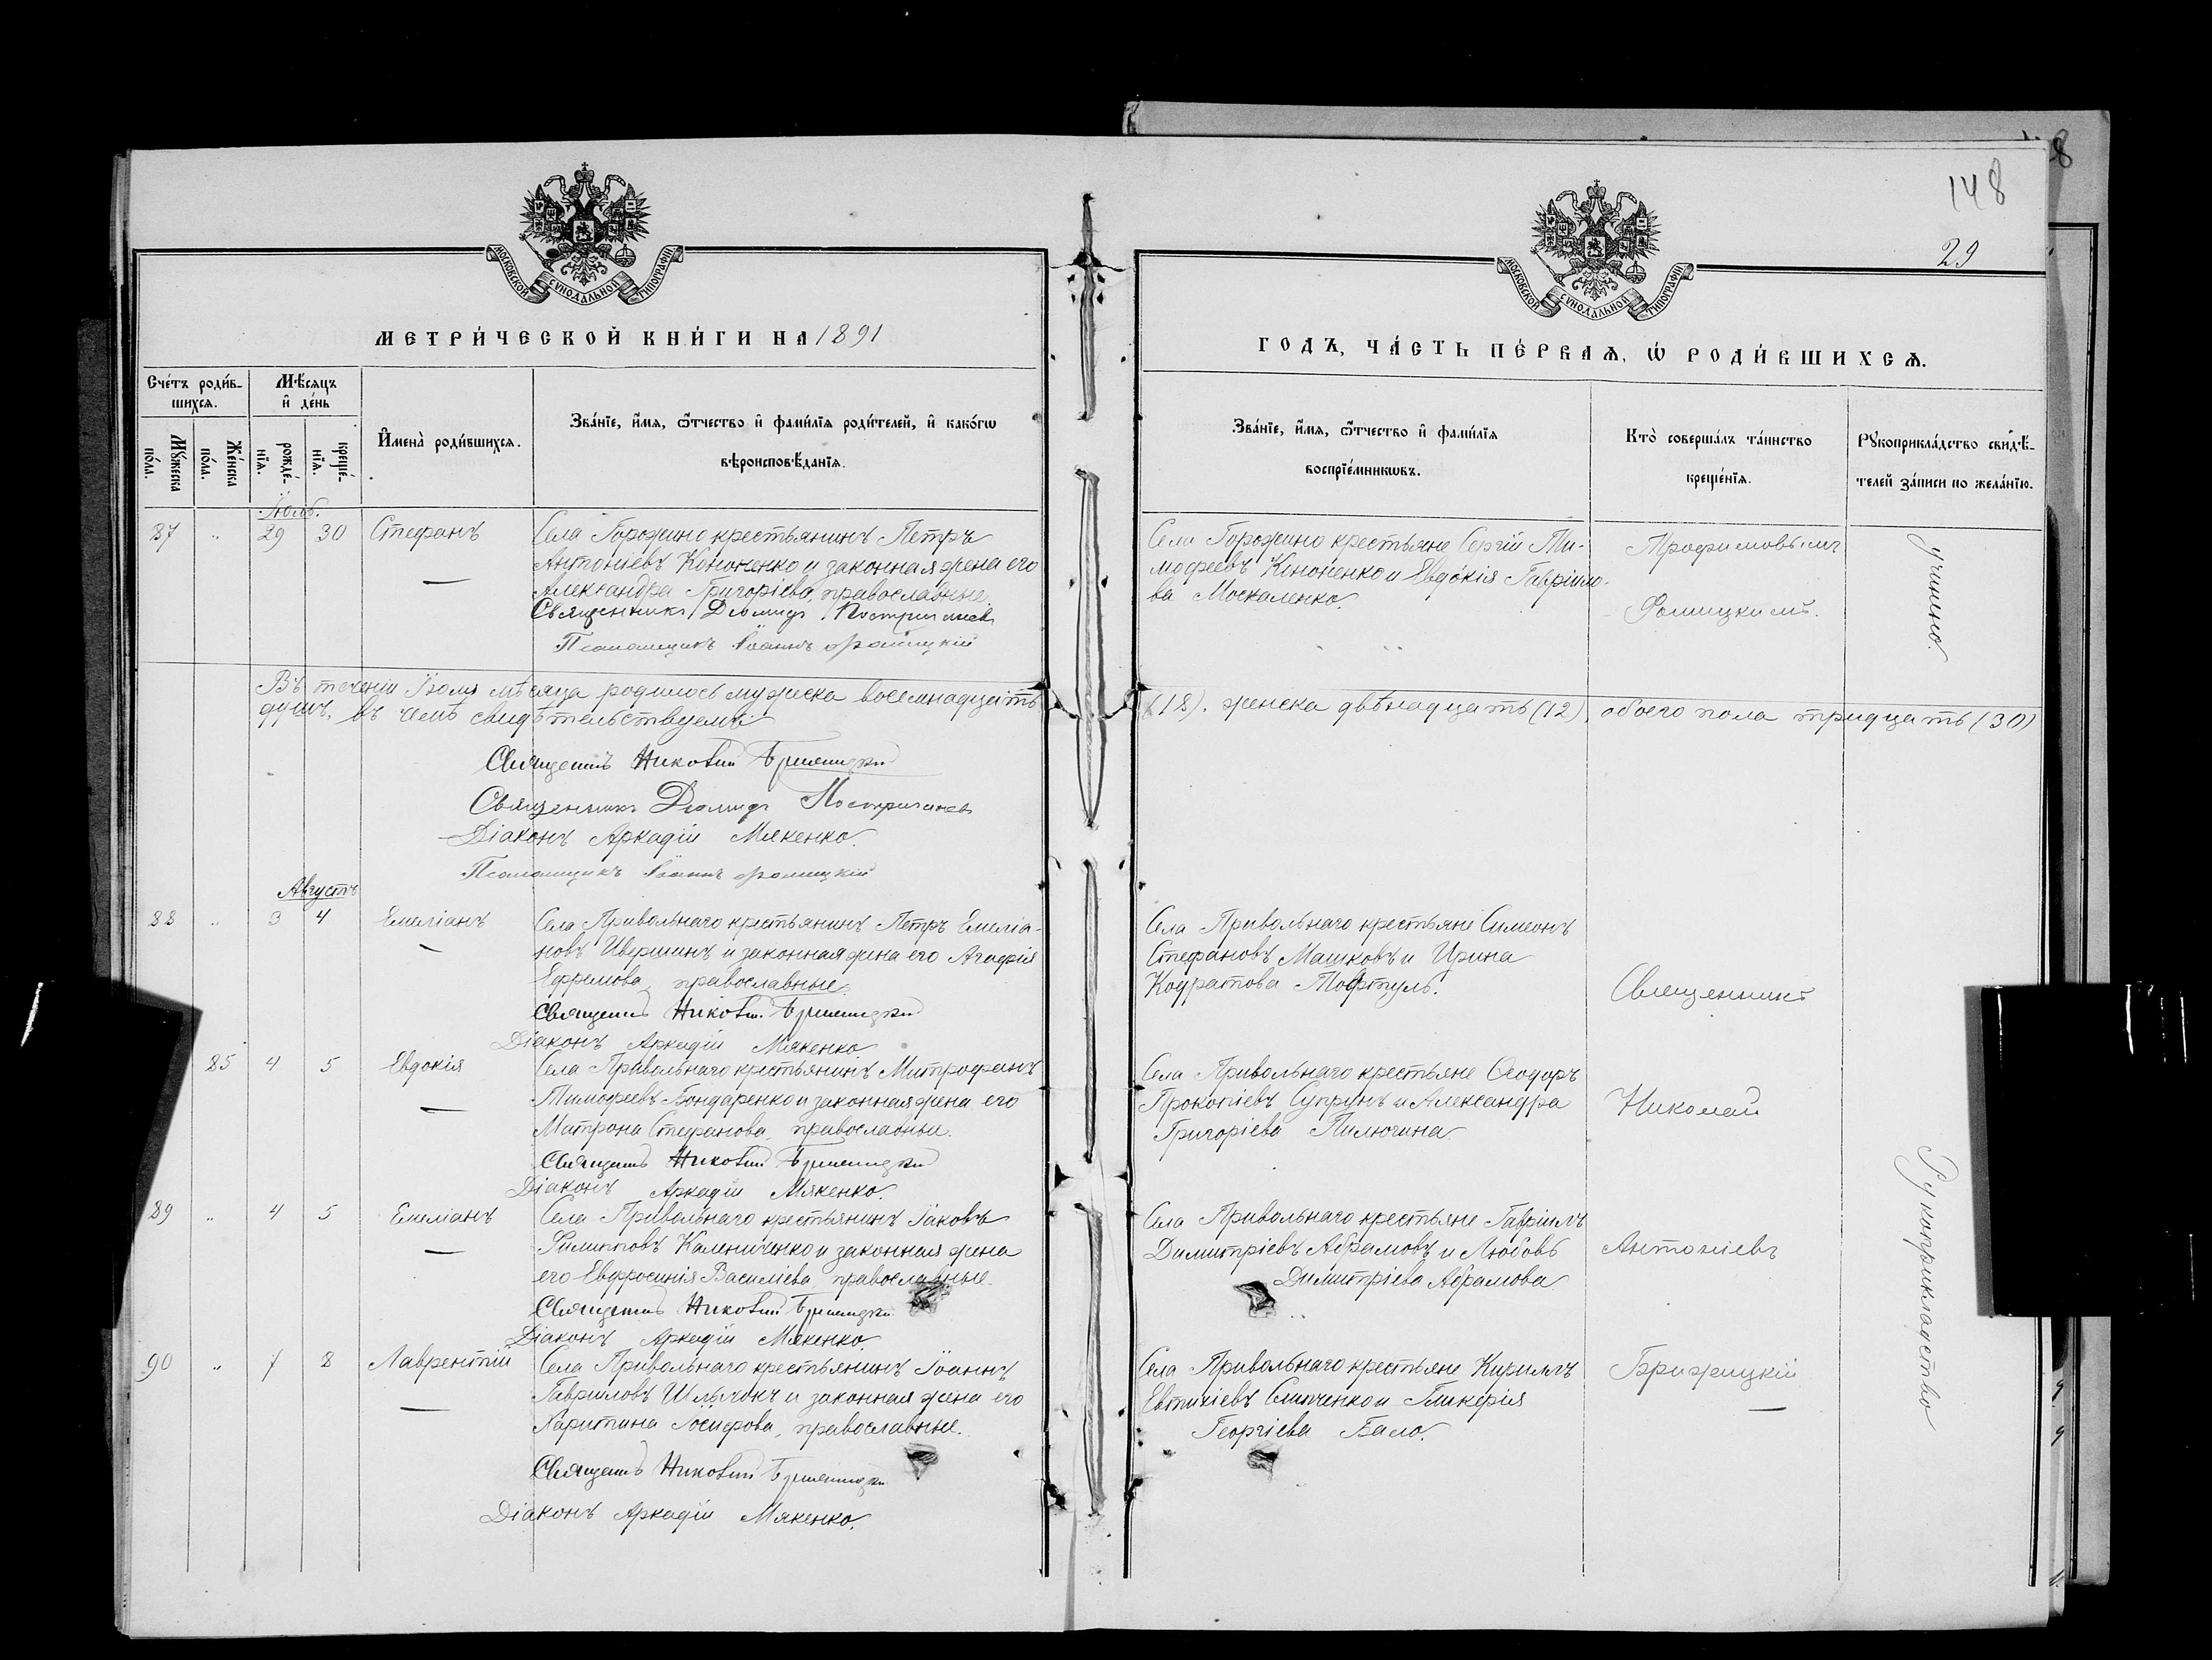 148
29
МОСКОВСКОЙ СѴНОДАЛЬНОЙ ТИПОГРАФІИ
МОСКОВСКОЙ СѴНОДАЛЬНОЙ ТИПОГРАФІИ
МЕТРИ́ЧЕСКОЙ КНИ́ГИ НА 1891
ГОДЪ, ЧА́СТЬ ПЕ́РВАѦ, Ѡ҆ РОДИ́ВШИХСѦ.
Сче́тъ роди́в-
шихсѧ.
Мѣ́сѧцъ
и҆ де́нь
Мꙋ́жеска
по́ла.
Же́нска
по́ла.
рожде́-
нїѧ.
креще́-
нїѧ.
И҆мена̀ роди́вшихсѧ.
Зва́нїе, и҆́мѧ, ѻ҆́тчество и҆ фами́лїѧ роди́телей, и҆ како́гѡ
вѣроисповѣ́данїѧ.
Зва́нїе, и҆́мѧ, ѻ҆́тчество и҆ фами́лїѧ
воспрїе́мникѡвъ.
Кто̀ соверша́лъ та́инство
креще́нїѧ.
Рꙋкоприкла́дство свидѣ́-
телей за́писи по жела́нїю.
Іюль.
87 " 29 30 Стефанъ
Села Горожино крестьянинъ Петръ
Антоніевъ Кононенко и законная жена его
Александра Григоріева, православные.
Священникъ Діомидъ
Псаломщикъ Іоаннъ Фомицкій
Села Горожино крестьяне Сергій Ти-
мофеевъ Кононенко и Евдокія Гавріило-
ва Москаленко.
Трофимовымъ
Фомицкимъ.
учинено.
Въ теченіи Іюля мѣсяца родилось мужеска восемнадцать (18). женска двѣнадцать (12), обоего пола тридцать (30)
душъ, въ чемъ свидѣтельствуемъ:
Священникъ Николай Брижицкій
Священникъ Діомидъ
Діаконъ Аркадій Мякенко.
Псаломщикъ Іоаннъ Фомицкій
Августъ
88 " 3 4 Емеліанъ
Села Привольнаго крестьянинъ Петръ Емеліа-
новъ Ивершинъ и законная жена его Агафія
Ефремова, православные.
Священникъ Николай Брижицкій
Діаконъ Аркадій Мякенко
Села Привольнаго крестьяне Симеонъ
Стефановъ Машковъ и Ирина
Кодратова Мофтуль.
Священникъ
85 4 5 Евдокія
Села Привольнаго крестьянинъ Митрофанъ
Тимофеевъ Бондаренко и законная жена его
Матрона Стефанова, православные.
Священникъ Николай Брижицкій
Діаконъ Аркадій Мякенко.
Села Привольнаго крестьяне Ѳеодоръ
Прокопіевъ Супрунъ и Александра
Григоріева Пилюгина.
Николай
89 " 4 5 Емеліанъ
Села Привольнаго крестьянинъ Іаковъ
Филипповъ Калениченко и законная жена
его Евфросинія Василіева, православные.
Священникъ Николай Брижицкій
Діаконъ Аркадій Мякенко.
Села Привольнаго крестьяне Гавріилъ
Димитріевъ Абрамовъ и Любовь
Димитріева Абрамова.
Антоніевъ
90 " 7 8 Лаврентій
Села Привольнаго крестьянинъ Іоаннъ
Гавриловъ Шлычокъ и законная жена его
Харитина Іосифова, православные.
Священникъ Николай Брижицкій
Діаконъ Аркадій Мякенко.
Села Привольнаго крестьяне Кириллъ
Евтихіевъ Слипченко и Гликерія
Георгіева Бало.
Брижицкій
Рукоприкладство